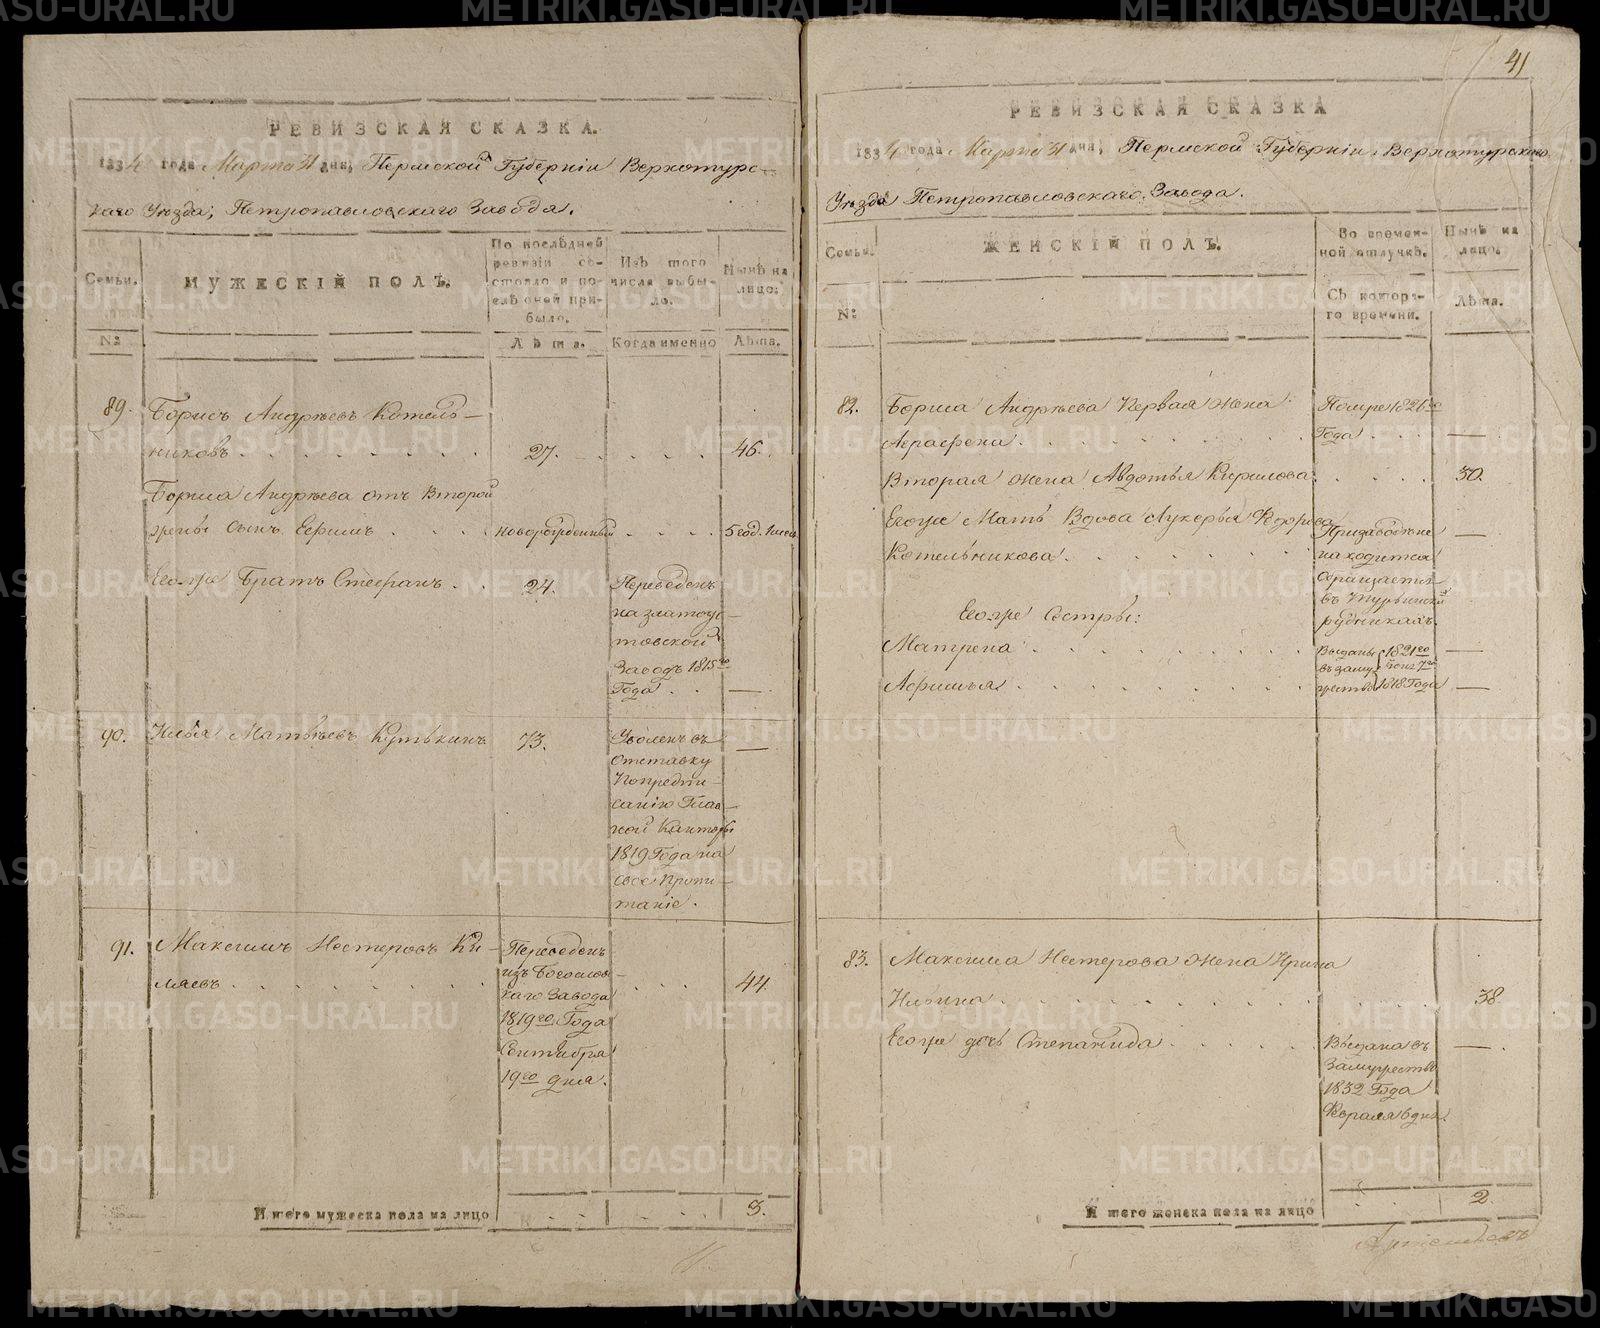 41
РЕВИЗСКАЯ СКАЗКА.
1834 года Марта 31 дня, Пермской Губерніи Верхотурс-
каго Уѣзда, Петропавловскаго Завода.
Семьи.
МУЖЕСКІЙ ПОЛЪ.
По послѣдней ревизіи состояло и послѣ оней прибыло.
Изъ того числа выбыло.
Нынѣ на лицо.
№
Лѣта.
Когда именно
Лѣта.
89.
Борисъ Андрѣевъ Котель-
никовъ
27.
46.
Бориса Андрѣева отъ Второй
жены сынъ Ефимъ
новорожденный
5 год.
Егоже Братъ Стефанъ
24.
Переведенъ
на златоус-
товской
Заводъ 1815го
Года
90.
Илья Матвѣевъ Кутькинъ
73.
Уволенъ въ
отставку
По предпи-
санію Глав-
ной Канторы
1819 Года на
свое пропи-
таніе.
91.
Максимъ Нестеровъ Ки-
ляевъ
Переведенъ
изъ Богослов-
скаго Завода
1819го Года
Сентября
19го дня.
44.
Итого мужеска пола на лицо
3.
РЕВИЗСКАЯ СКАЗКА
1834 года Марта 31 дня, Пермской Губерніи Верхотурскаго
Уѣзда Петропавловскаго Завода.
Семьи.
ЖЕНСКІЙ ПОЛЪ.
Во временной отлучкѣ.
Нынѣ на лицо.
№
Съ котораго времени.
Лѣта.
82.
Бориса Андрѣева Первая жена
Аграфена
Помре 1826го
Года
Вторая жена Авдотья Кирилова
30.
Егоже Мать Вдова Лукерья Федорова
Котельникова
находится
въ Турьинскихъ
рудникахъ.
Егоже Сестры:
Матрена
Афимья
Выданы
въ заму-
жество
1821го
1818 Года
83.
Максима Нестерова жена Ирина
Ильина
38.
Егоже дочь Степанида
Выдана въ
Замужество
1832 Года
Февраля 6 дня.
Итого женска пола на лицо
2.
METRIKI.GASO-URAL.RU